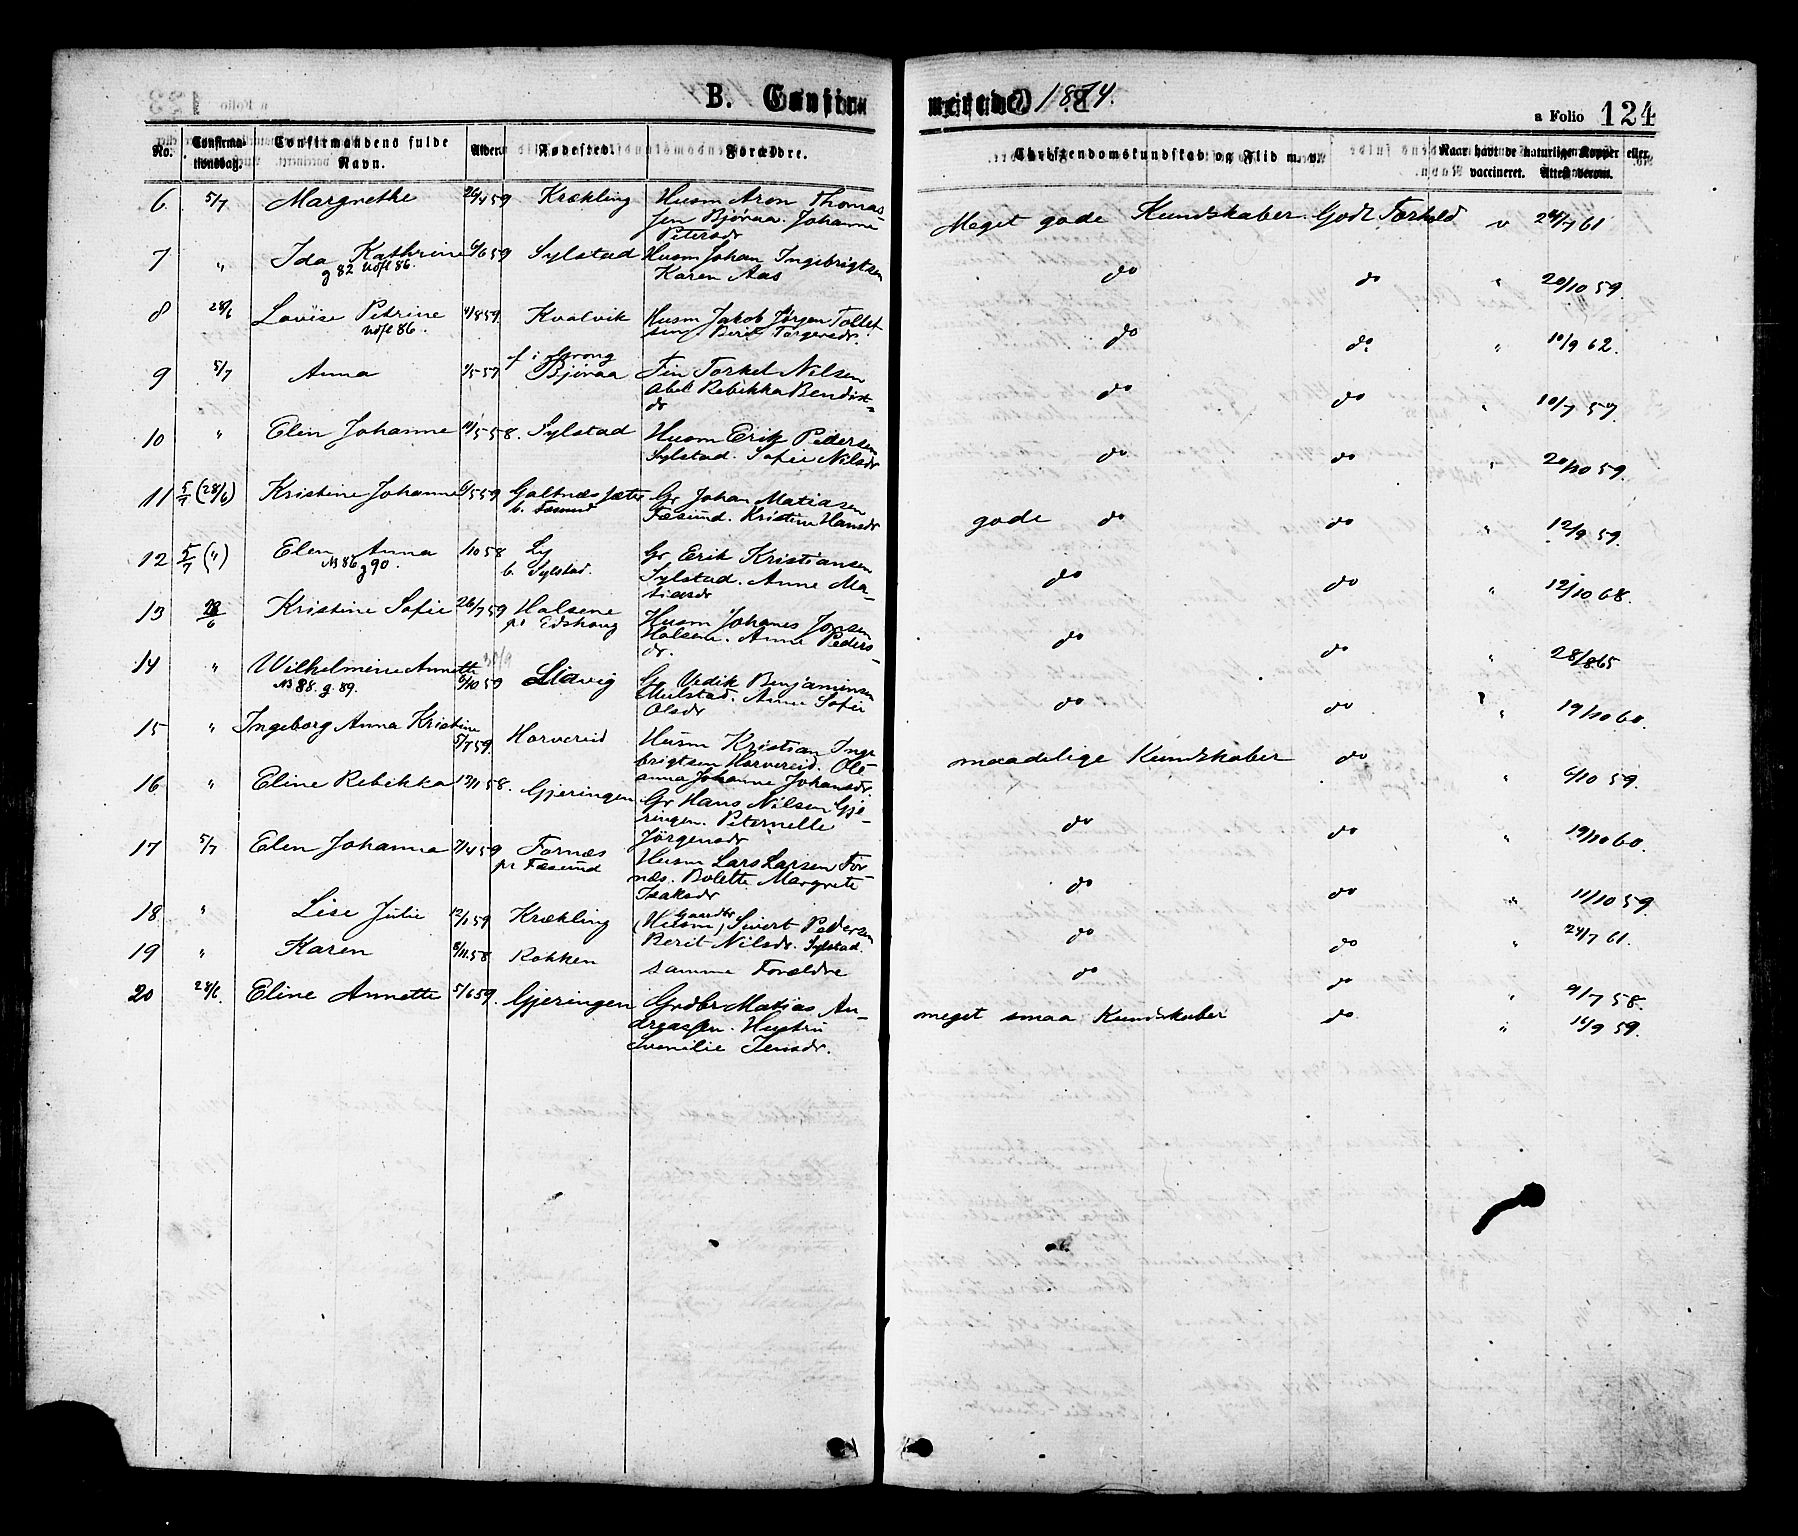 B. Confir
merede 1874.
a Folio 124
No. Confirma- Confirmandens fulde Alder. Fødested. Forældre. Christendomskundskab og Flid m. v. Naar havt de naturlige Kopper eller
tionsdag. Navn. vaccineret. Attest derom.
6. 5/7 Margrethe 26/4 59 Krækling Husm Aron Thomas-
sen Bjøraa. Johanna
Petersdr
Meget gode Kundskaber. Godt Forhold v 24/7 61
7 " Ida Kathrine 6/6 59 Sylstad Husm Johan Ingebrigtsen
g 82 Karen Aas
do do " 20/10 59.
8 28/6 Lovise Petrine 4/8 59. Kvalvik Husm Jakob Jørgen Tollef
sen Berit Torgersdr.
do do. " 10/9 62.
9 5/7 Anna 1/5 57 f i Grong
Bjøraa Fin Torkel Nilsen
Abel Rebikka Bendikt-
dr
do do " 10/7 57
10 " Elen Johanne 11/5 58. Sylstad Husm Erik Pedersen
Sylstad. Sofie Nilsdr
do do " 20/10 59.
11 5/7 (28/6) Kristine Johanne 6/5 59 Galtnæs sæter Gr Johan Matiasen
b. Fæsund Fæsund. Kristine Hansdr
gode do do " 12/9 59.
12 5/7 (") Elen Anna 1/10 58 Ly Gr Erik Kristiansen
N 86 g 90. b. Sylstad. Sylstad. Anne Ma-
tiasdr
do do " 12/10 68.
13 28/6 Kristine Sofie 26/7 59 Halsene Husm Johanes Jonsen
pr Edshaug Halsene. Anne Peders-
dr.
do do " 28/8 65
14 " Wilhelmine Annette 6/10 59 Lidvig Gr Vedik Benjaminsen
N 88. g. 89. Mulstad. Anne Sofie
Olsdr
do do. " 19/10 60.
15 " Ingeborg Anna Kristine 5/7 59. Horvereid Husm Kristian Inge
brigtsen Horvereid. Ole-
anna Johanne Johansdr.
maadelige Kundskaber do " 6/10 59.
16 " Eline Rebikka 12/11 58. Gjeringen Gr Hans Nilsen Gje-
ringen. Peternelle
Jørgensdr
do do " 19/10 60.
17 5/7 Elen Johanna 7/4 59 Fornæs Husm Lars Larsen For
pr Fæsund næs. Bolette Margrete
Isaksdr
do do " 11/10 59.
18 " Lise Julie 12/1 59 Krækling Gaardbr
(Husm) Sivert Pedersen
Berit Nilsdr. Sylstad.
do do " 24/7 61.
19 " Karen 8/11 58 Rokken samme Forældre
do do " 9/7 58.
20 28/6. Eline Annette 5/6 59. Gjeringen Grdbr Matias An-
dreassen. Hustru
Sivenilie Jensdr.
meget smaa Kundskaber do " 16/9 59.